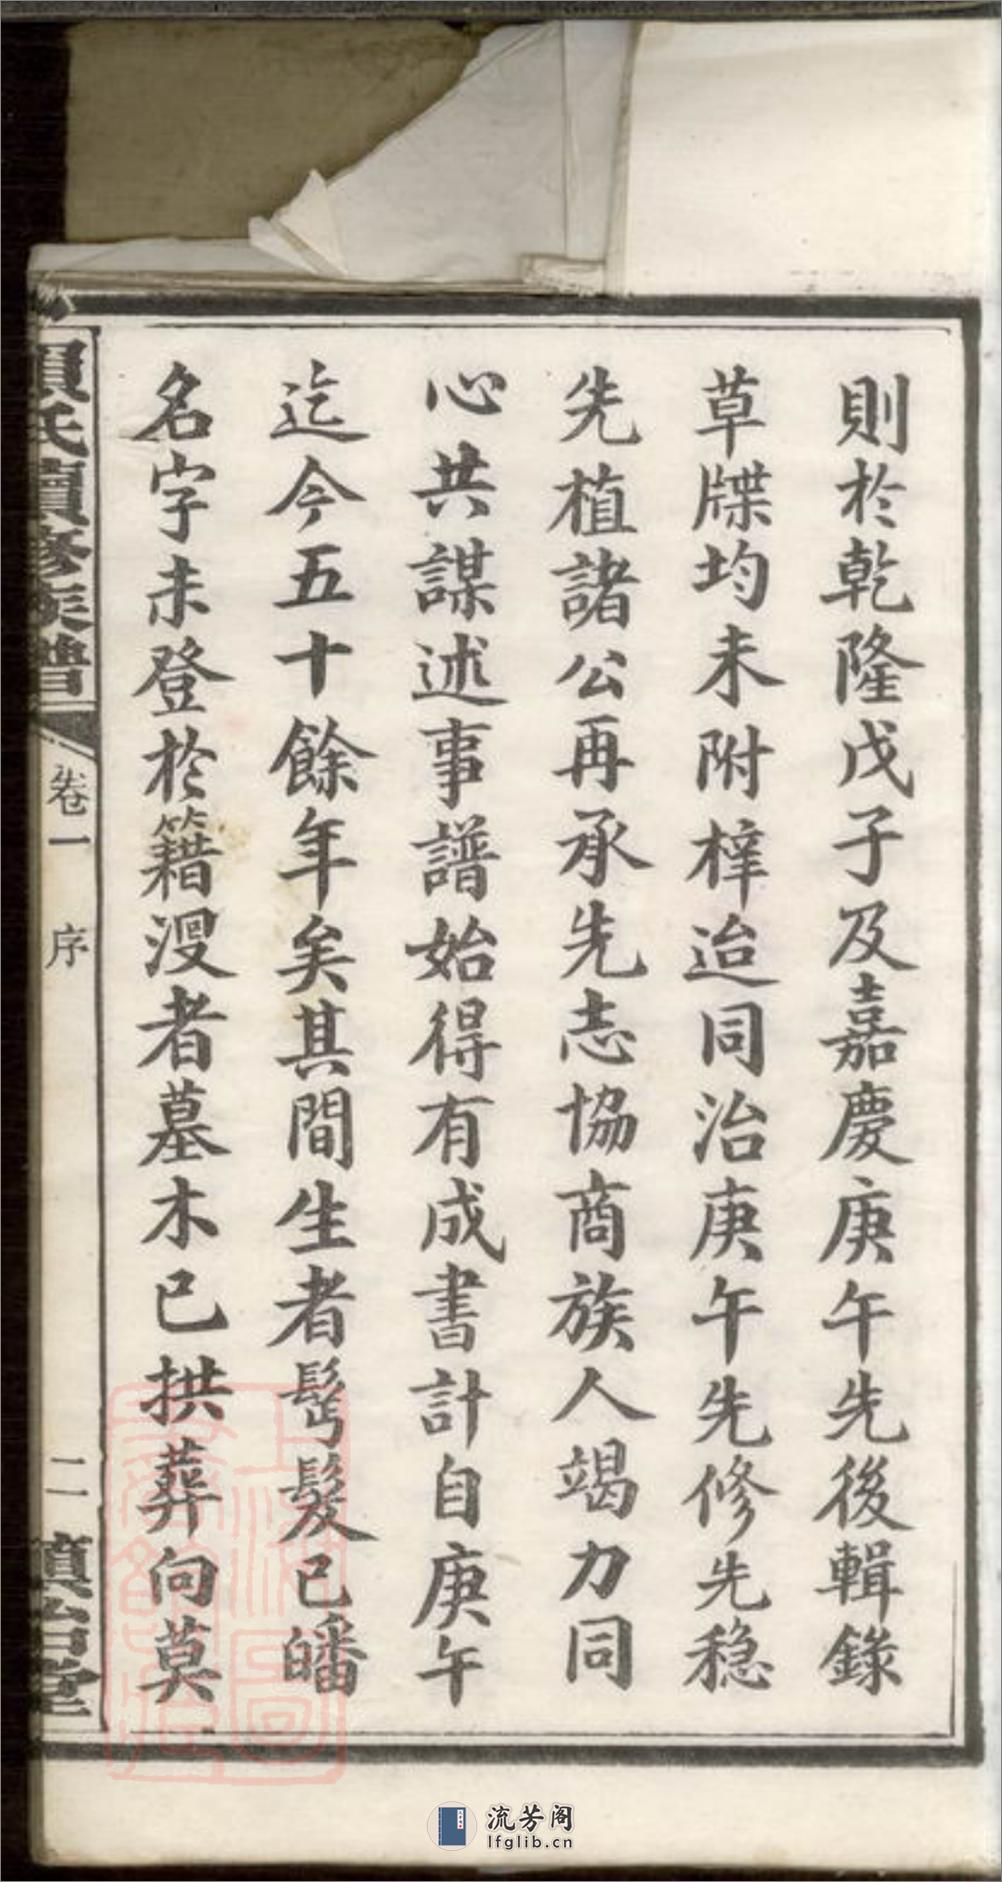 則於乾隆戊子及嘉慶庚午先後輯錄
草牒均未附梓迨同治庚午先修先穏
先植諸公再承先志協商族人竭力同
心共謀述事譜始得有成書計自庚午
迄今五十餘年矣其間生者髫髮已皤
名字未登於籍沒者墓木已拱葬向莫
氏續修族譜
卷一
序
二
堂
流芳阁
lfglib.cn